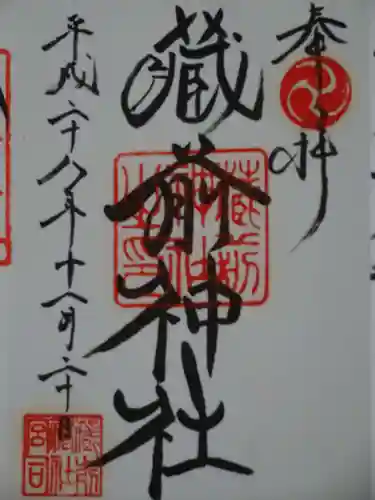 奉拝
藏前神社
平成二十八年十一月二十日
藏前神社之印
藏前神社宮司